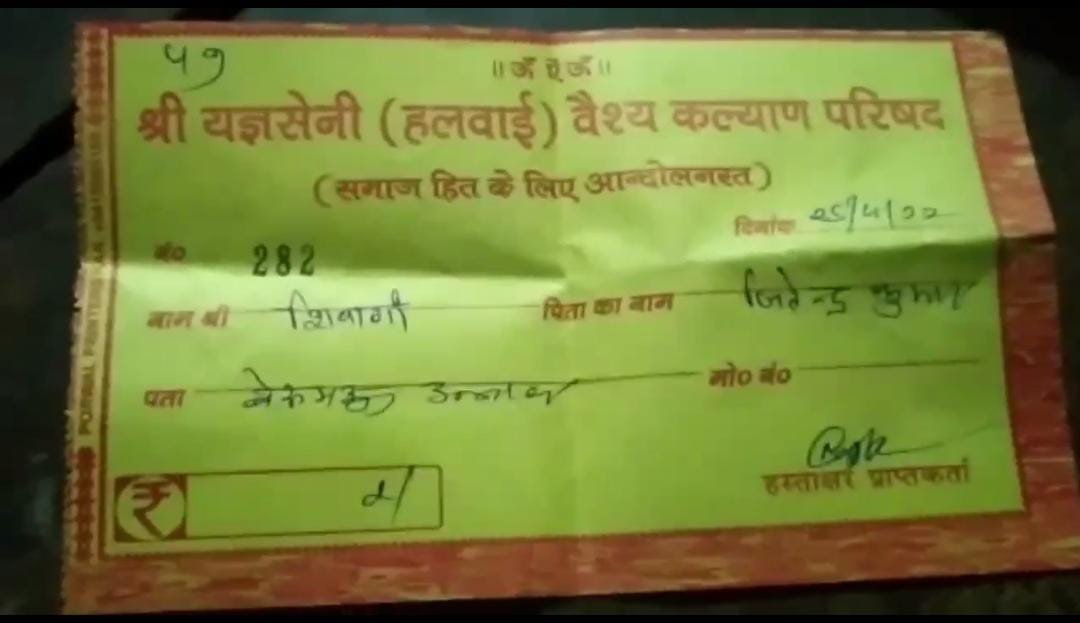 ५१
॥ ॐ ऐं ॐ ॥
श्री यज्ञसेनी (हलवाई) वैश्य कल्याण परिषद
(समाज हित के लिए आन्दोलनरत)
दिनांक २५/५/२२
नं० 282
नाम श्री शिवागी पिता का नाम जितेन्द्र कुमार
पता उन्नाव मो० नं०
₹
हस्ताक्षर प्राप्तकर्ता